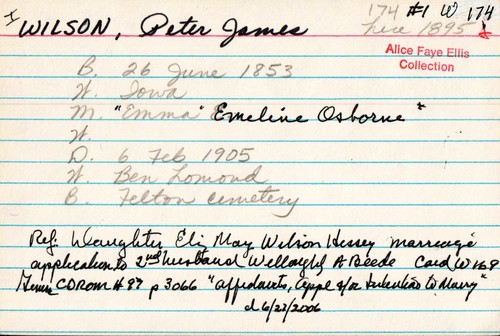 174 #1 W 174
I WILSON, Peter James
here 1895
Alice Faye Ellis
Collection
B. 26 June 1853
W. Iowa
M. "Emma" Emeline Osborne *
W.
D. 6 Feb 1905
W. Ben Lomond
B. Felton cemetery
Ref: Daughter Eliz May Wilson Hessey marriage
application to 2nd husband Willoughby A Beede Card W 169
CDROM # 97 p 3066 "affidavits, appl &/or Intention to Marry"
d 6/22/2006